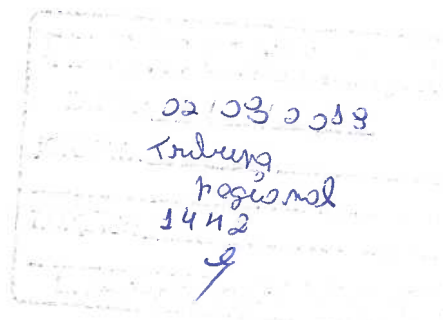 02 09 2019
Tribuna
regional
14 H2